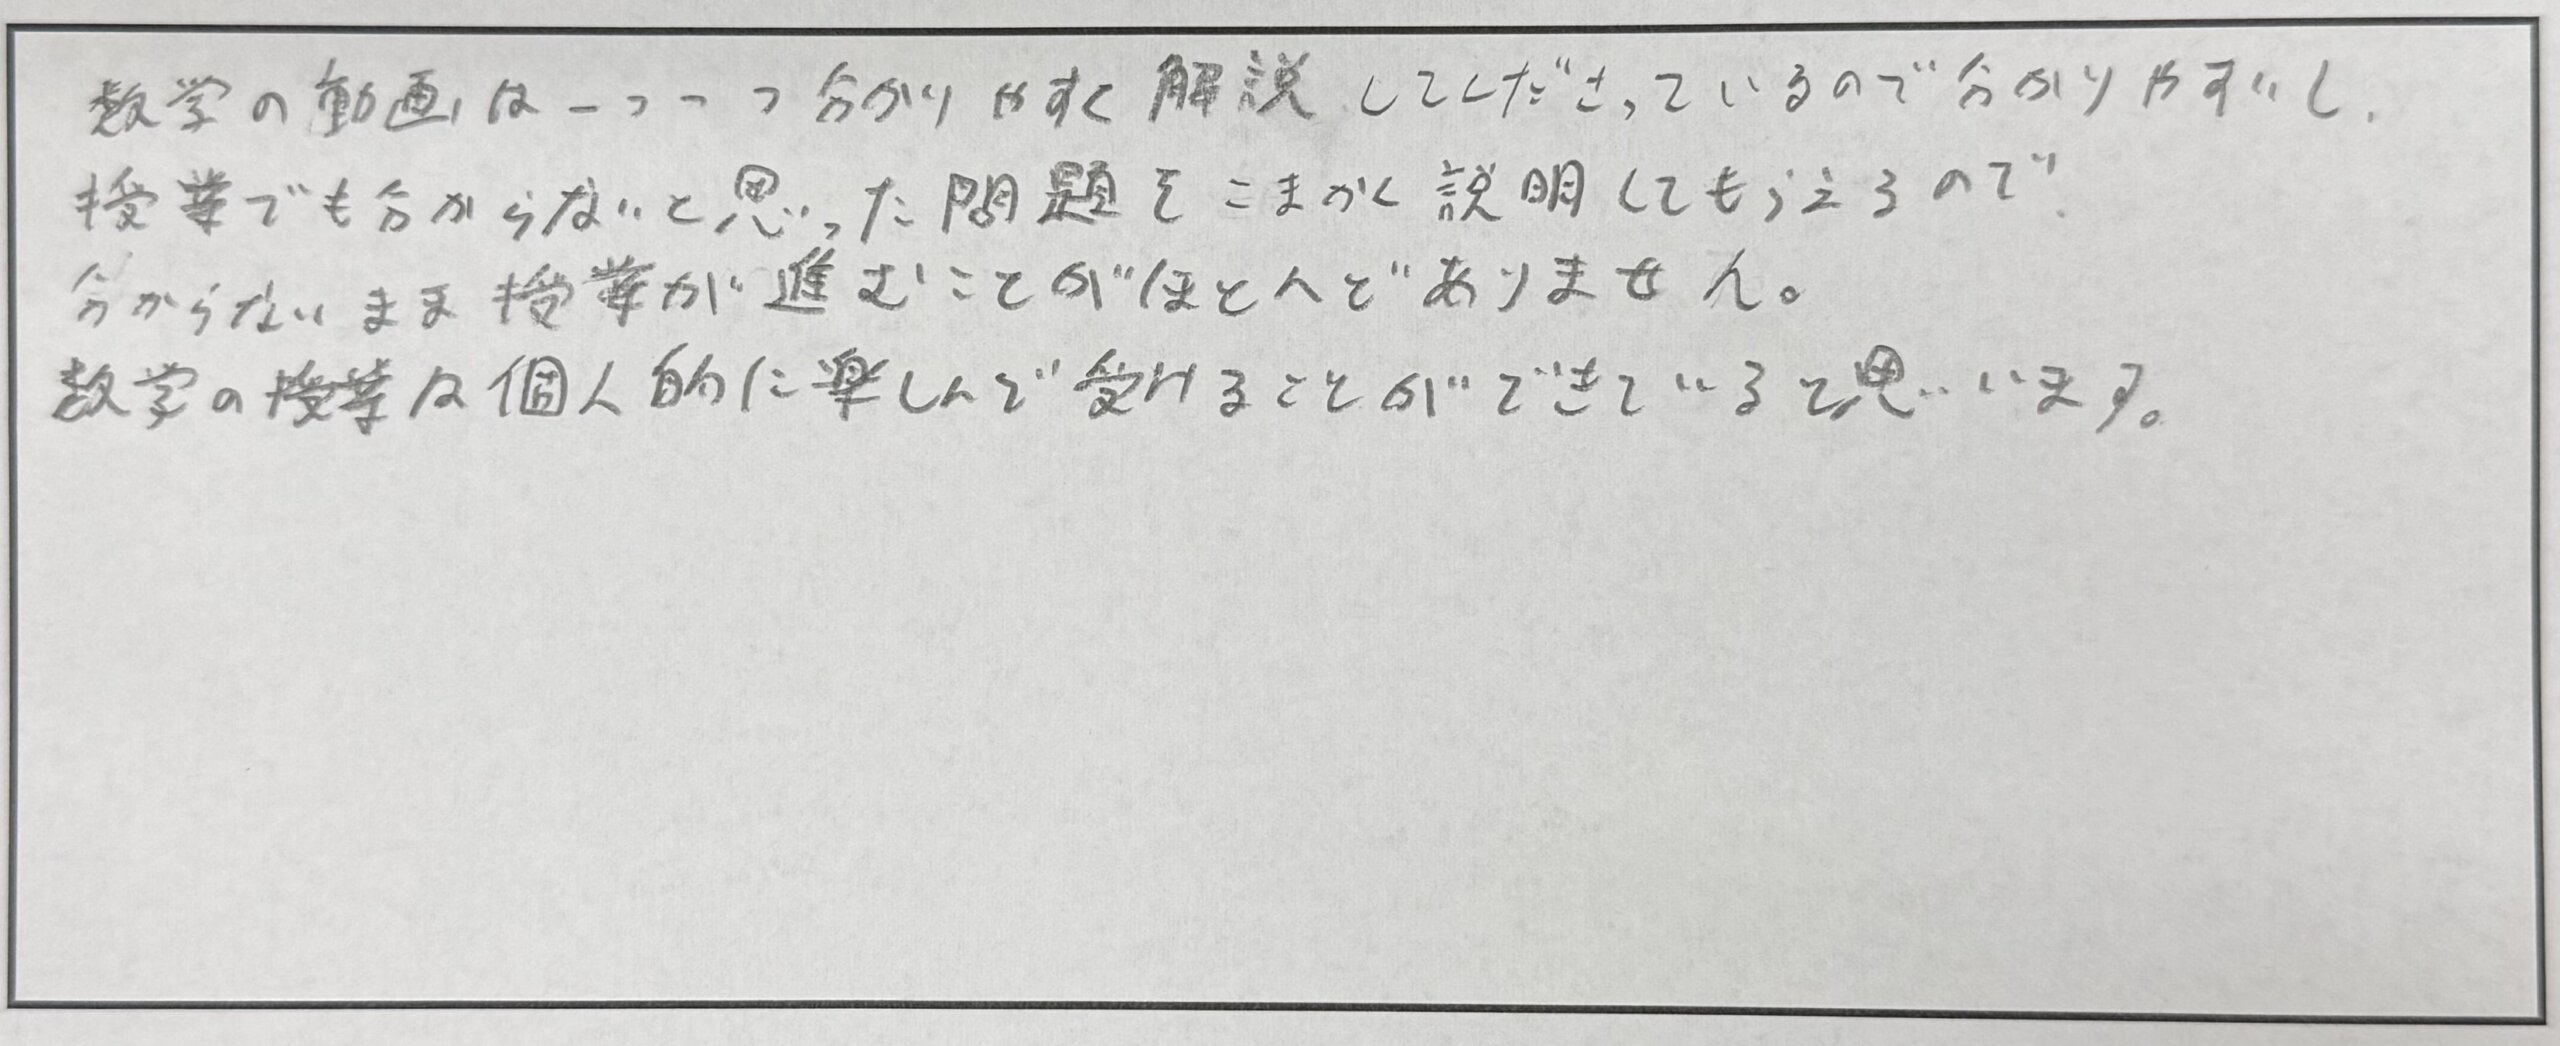 数学の動画は一つ一つ分かりやすく解説してくださっているので分かりやすいし、
授業でも分からないと思った問題をこまかく説明してもらえるので、
分からないまま授業が進むことがほとんどありません。
数学の授業は個人的に楽しんで受けることができていると思います。